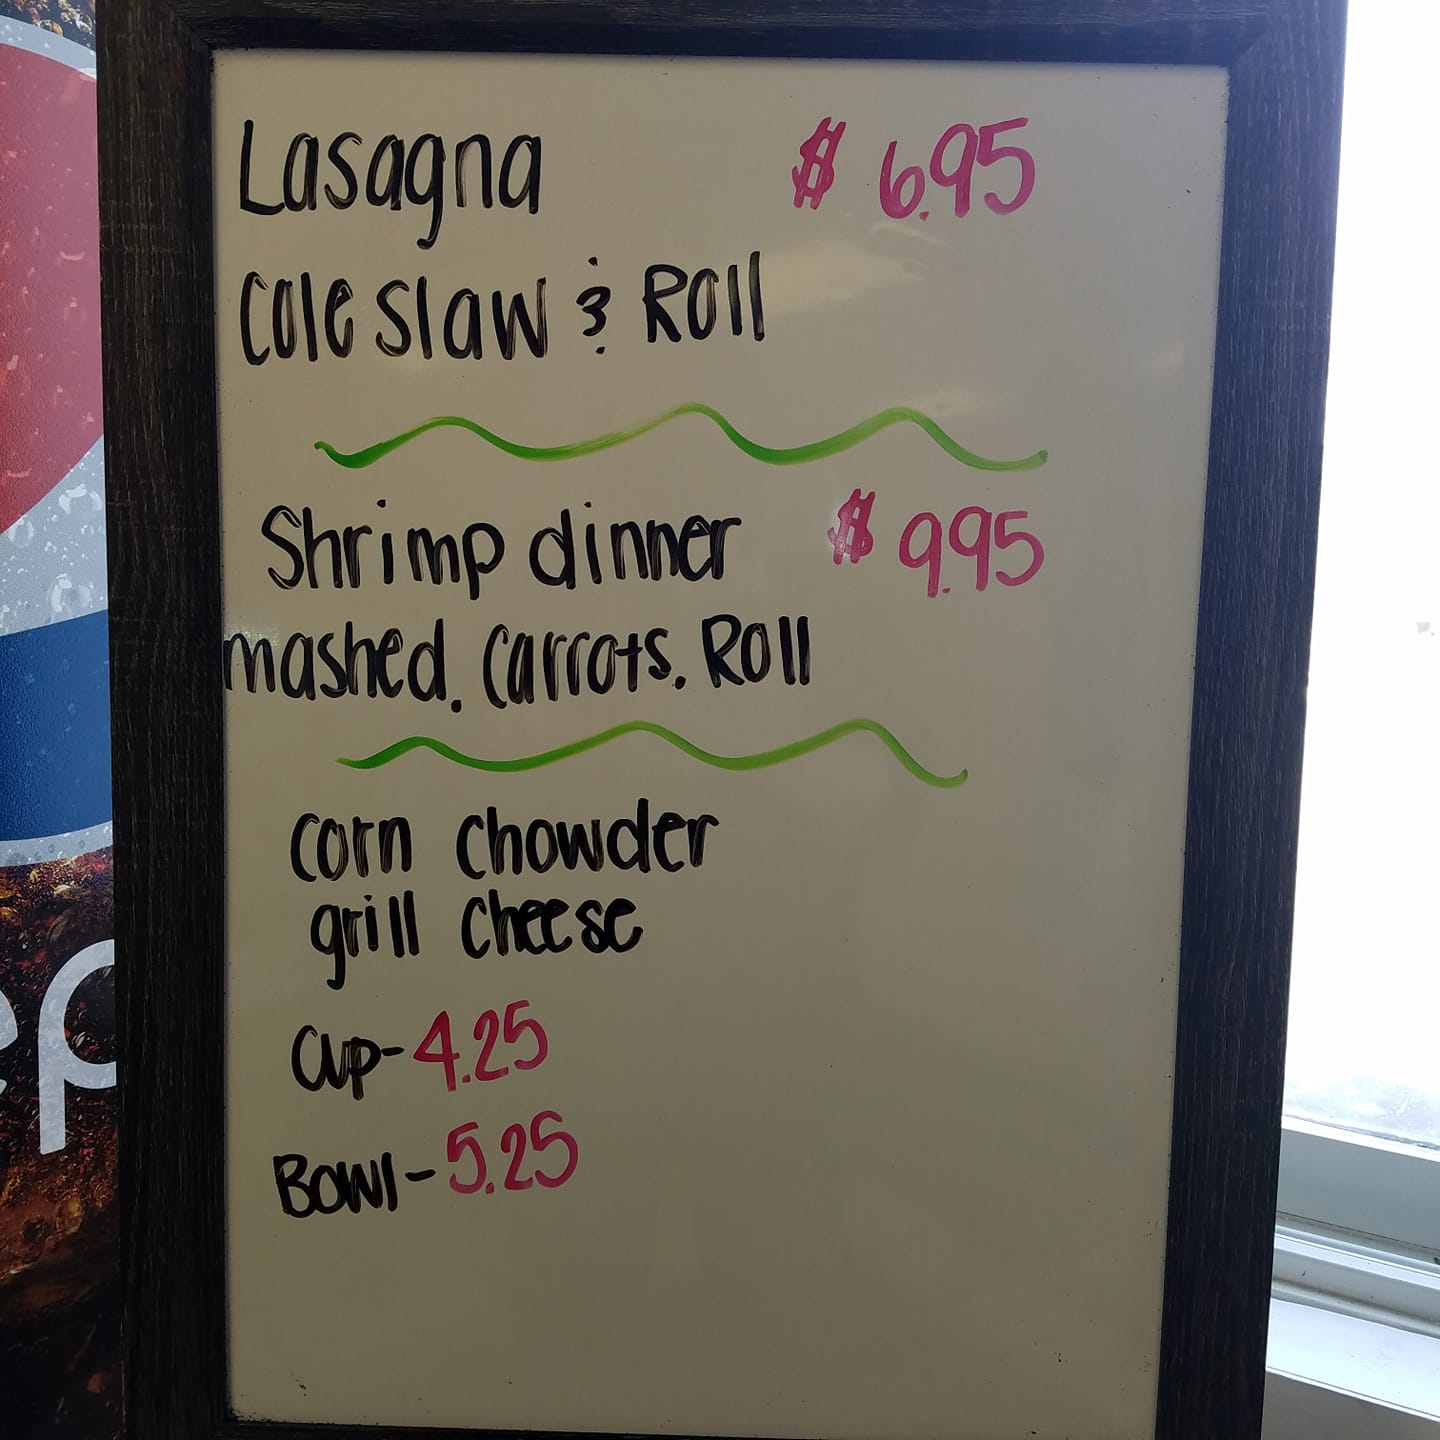 Lasagna $ 6.95
Cole slaw & Roll
Shrimp dinner $ 9.95
mashed. Carrots. Roll
corn chowder
grill cheese
Cup- 4.25
Bowl- 5.25
ep